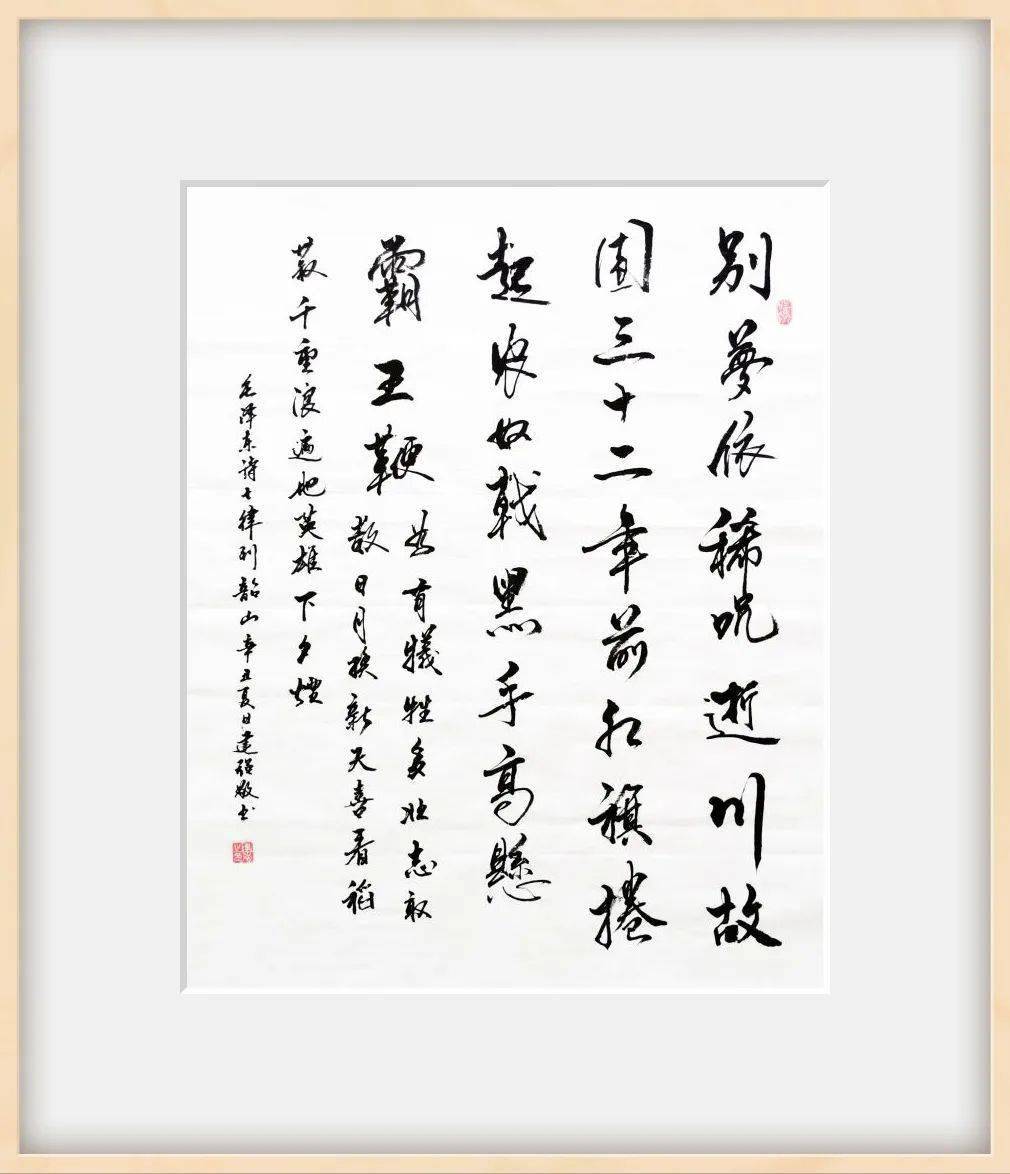 别夢依稀咒逝川故
園三十二年前红旗捲
起农奴戟黑手高懸
霸王鞭
为有犧牲多壮志敢
教日月换新天喜看稻
菽千重浪遍地英雄下夕煙
毛泽东诗七律到韶山辛丑夏日建强敬书